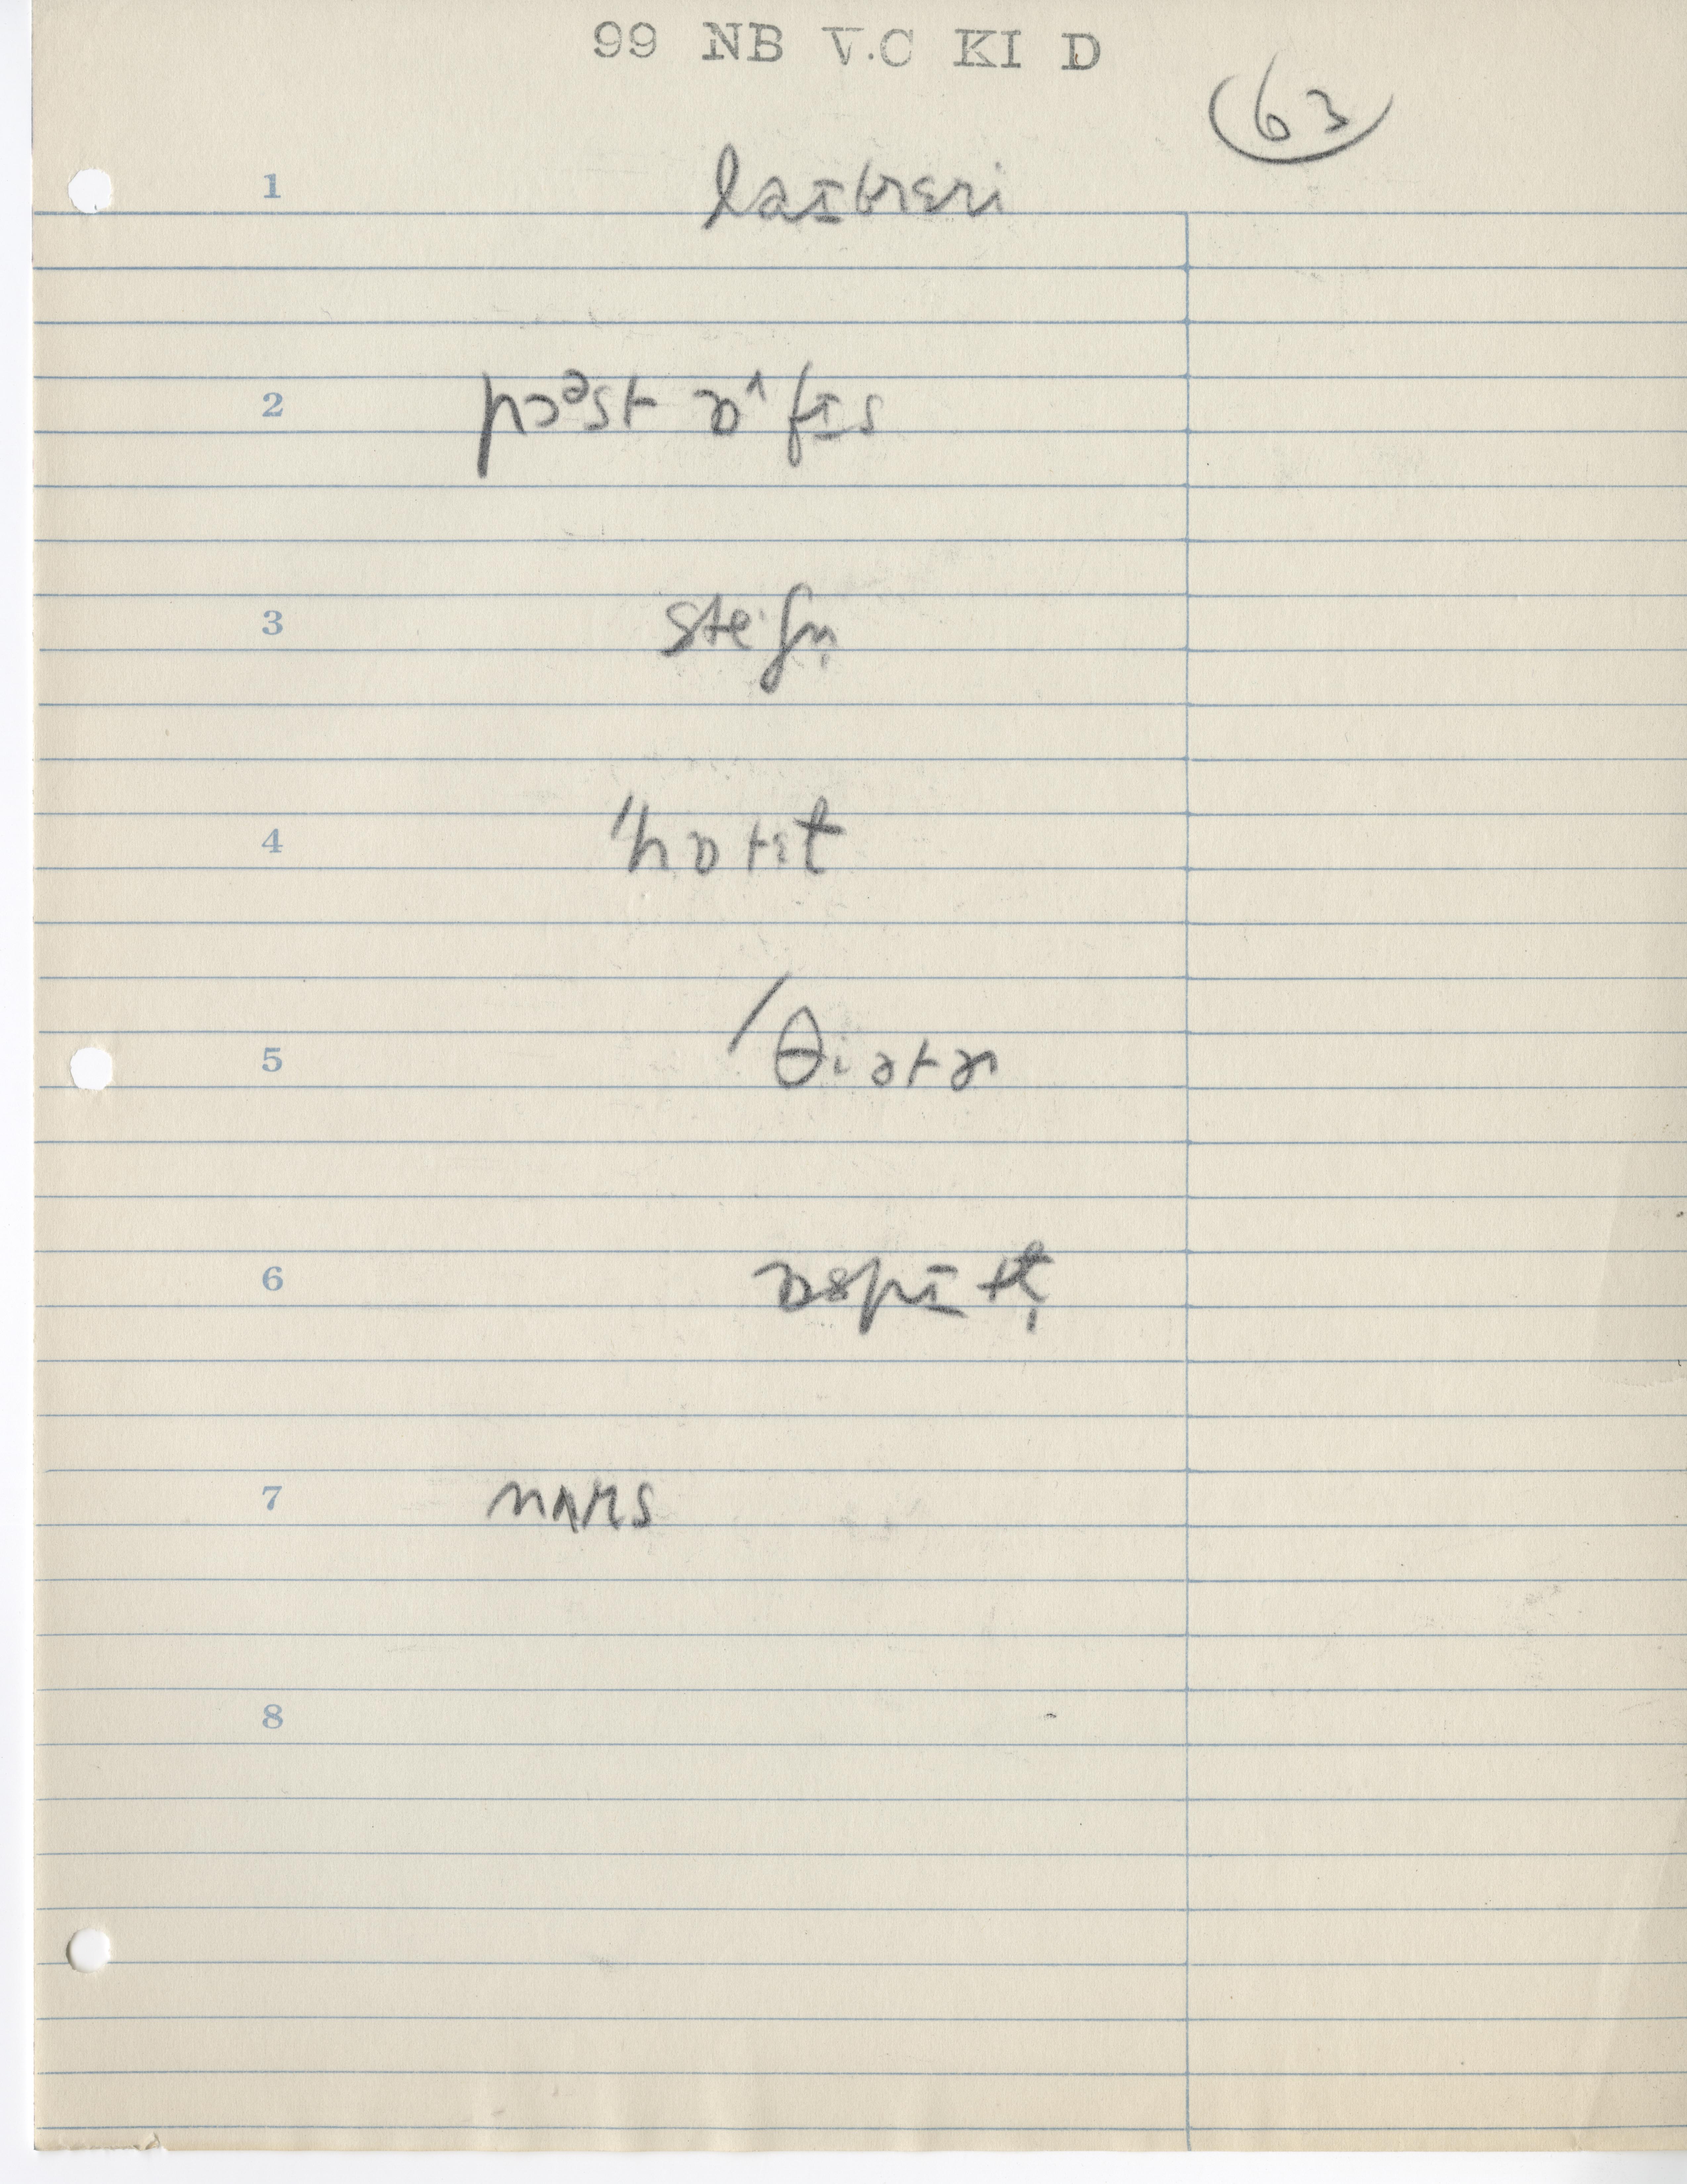 99 NB V.C KI D
63
1 laɪbrɛri
2 pɔᵊst ɒ^fɪs
3 steʃn̩
4 'hotɛt
5 'θiətɚ
6 ɒspɪtl̩
7 nʌrs
8